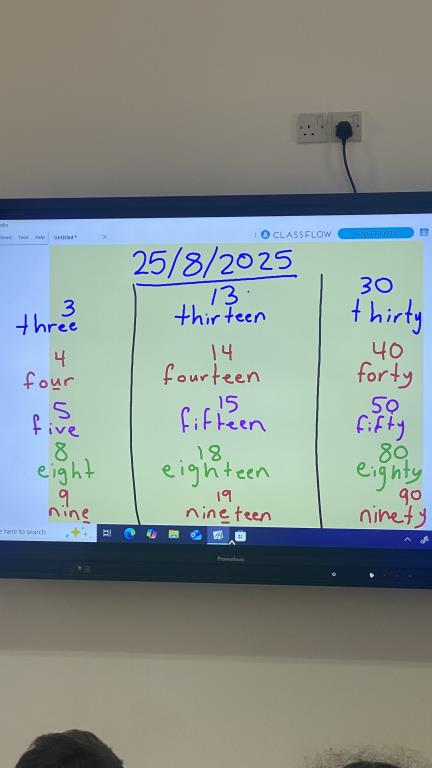 Tools Help Untitled* × CLASSFLOW
25/8/2025
3 13 30
three thirteen thirty
4 14 40
four fourteen forty
5 15 50
five fifteen fifty
8 18 80
eight eighteen eighty
9 19 90
nine nineteen ninety
here to search
Promethean